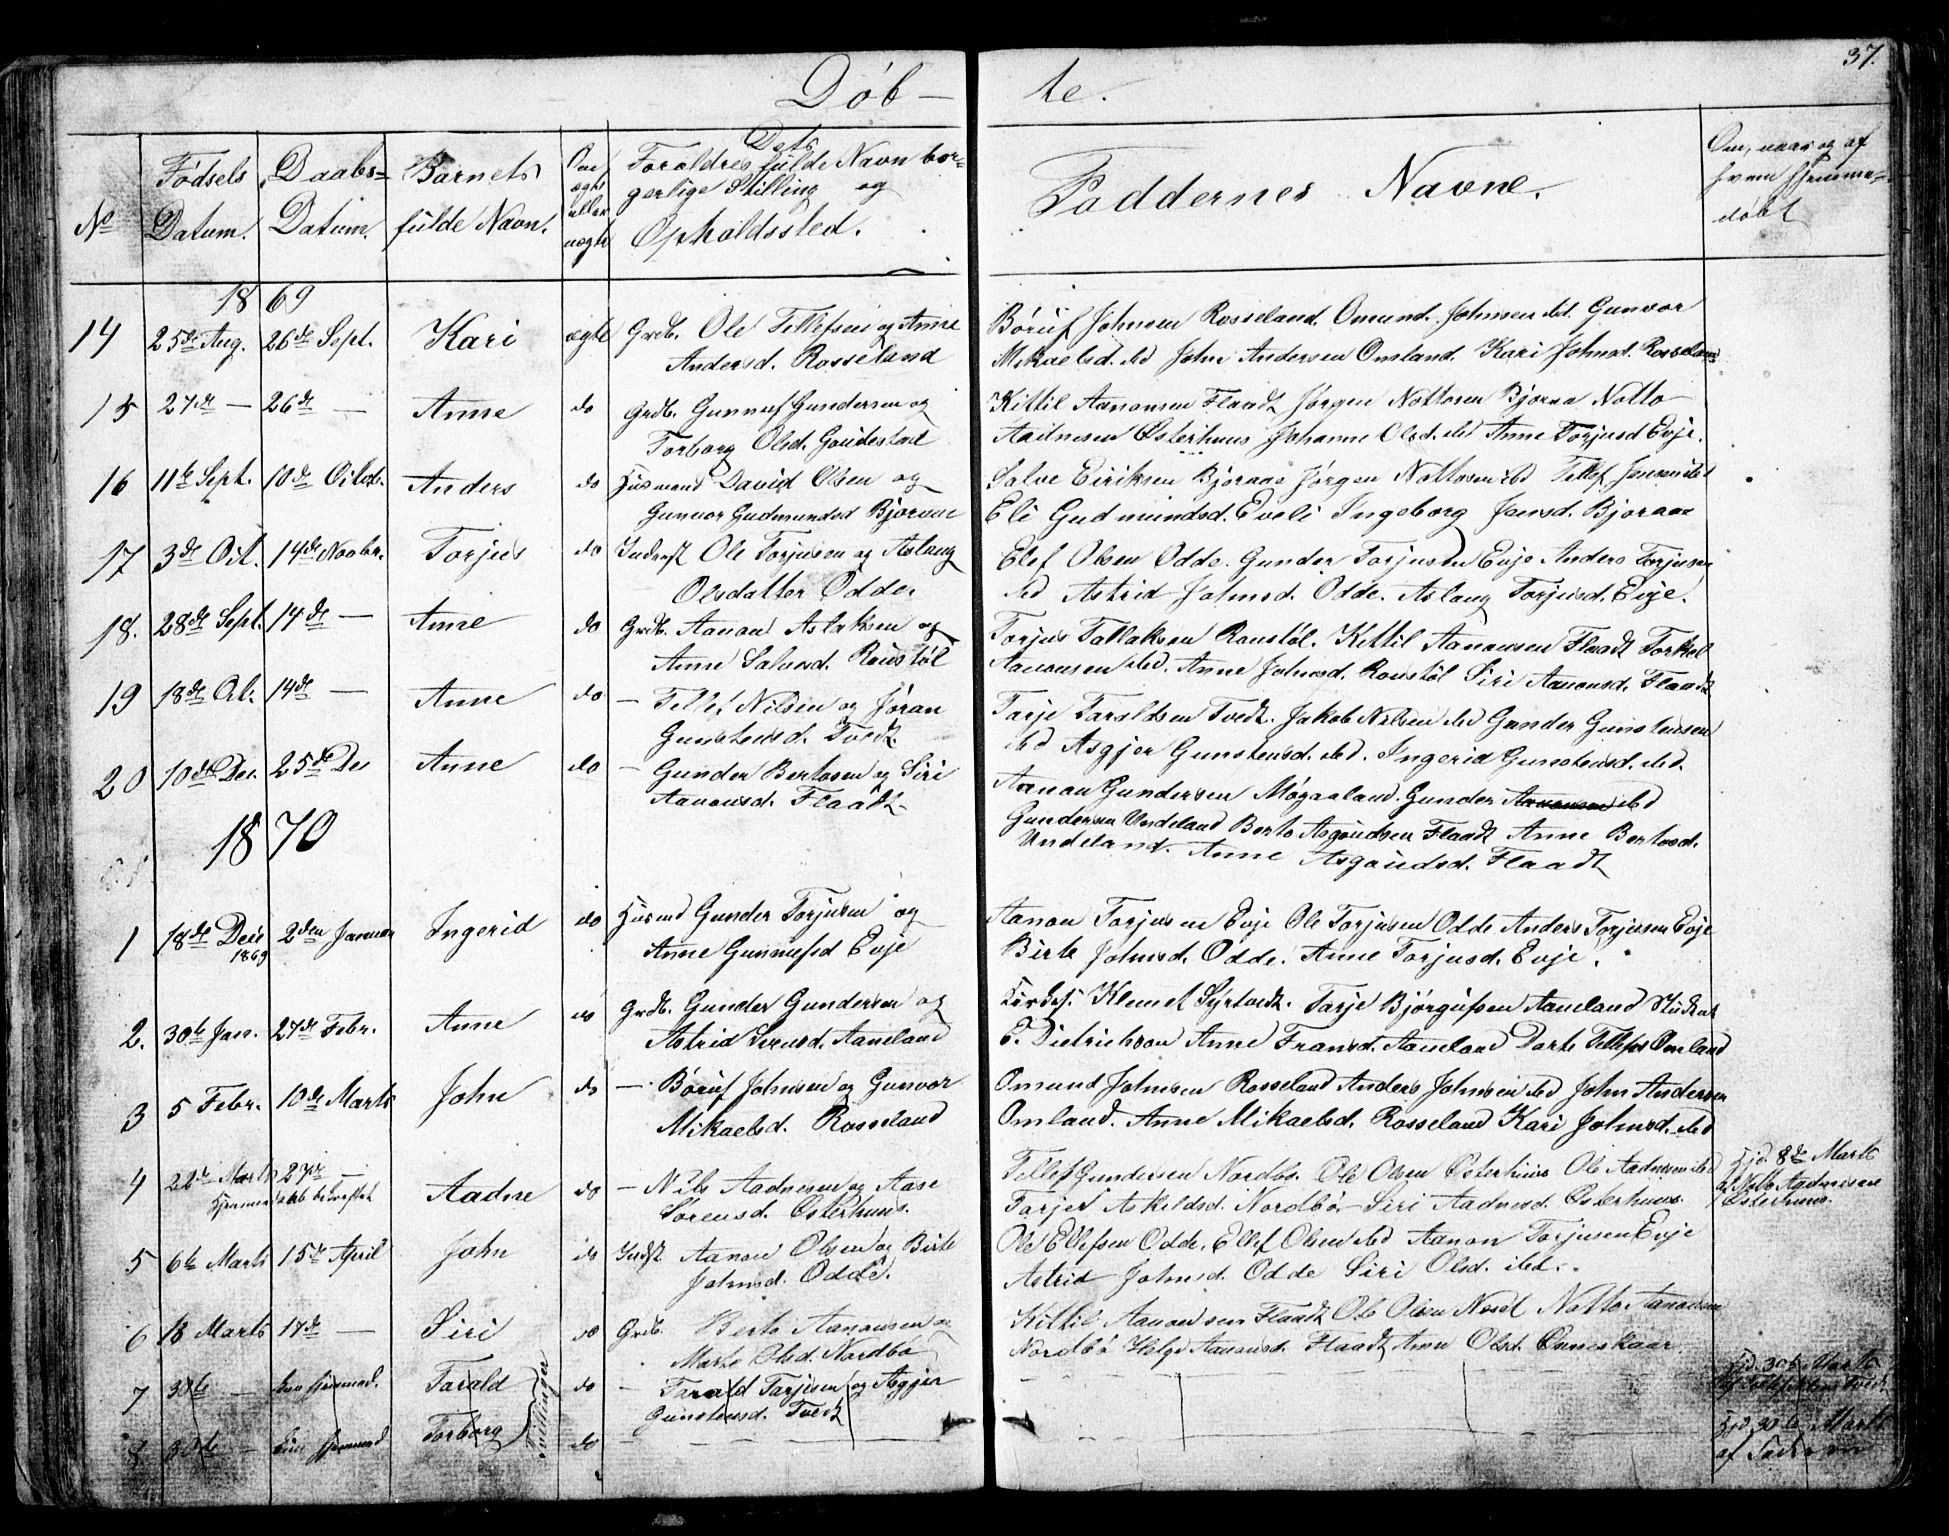 37.
Døb-
te.
No
Fødsels Datum.
Daabs- Datum.
Barnets fulde Navn.
Om ægte eller uægte
Dets Forældres fulde Navn bor-
gerlige Stilling og
Opholdssted.
Faddernes Navne.
Om, naar og af
hvem hjemme-
døbt
1869
14 25de Aug. 26de Sept. Kari ægte Grdb. Ole Tellefsen og Anne
Andersd. Rosseland
Børuf Johnsen Rosseland. Omund Johnsen ibd. Gunvor
Mikaelsd. ibd John Andersen Omland. Kari Johnsd. Rosseland
15 27de — 26de — Anne do Grdb. Gunnuf Gundersen og
Torborg Olsd.
Kittil Aanonsen Flaadt Jørgen Nottosen Bjoraa Notto
Aadnesen Østerhuus Johanne Olsd. ibd Anne Torjusd Evje.
16 11te Sept. 10de Octob. Anders do Husmand David Olsen og
Gunvor Gudmundsd Bjoraae
Salve Eiriksen Bjoraae Jørgen Nottosen ibd Tellef Jensen ibd
Eli Gudmundsd. Eveli Ingeborg Jensd. Bjoraae
17 3de Oct. 14de Novbr. Torjus do Inderst Ole Torjusen og Aslaug
Olsdatter Odde.
Elef Olsen Odde. Gunder Torjusen Evje Anders Torjusen
ibd Astrid Johnsd. Odde. Aslaug Torjusd. Evje.
18. 28de Sept. 14de — Anne do Grdb. Aanon Aslaksen og
Anne Salvesd. Roustøl
Torjus Tallaksen Roustøl. Kittil Aanonsen Flaadt Torkel
Aanonsen ibd. Anne Johnsd. Roustøl Siri Aanonsd. Flaadt
19 18de Oct. 14de — Anne do — Tellef Nilsen og Jøran
Gunstensd. Tvedt
Tarje Taraldsen Tvedt. Jakob Nilsen ibd Gunder Gunstensen
ibd Asgjer Gunstensd. ibd. Ingerid Gunstensd. ibd.
20 10de Dec. 25de Dec Anne do — Gunder Bertosen og Siri
Aanonsd. Flaadt
Aanon Gundersen Møgaaland. Gunder Aanonsen ibd
Gundersen Undeland Berto Asgoudsen Flaadt Anne Bertosd.
Undeland. Anne Asgoudsd. Flaadt
1870
1 18de Dec 1869 2den Januar Ingerid do Husmd Gunder Torjusen og
Anne Gunnufsd Evje
Aanon Torjusen Evje Ole Torjusen Odde Anders Torjusen Evje
Birte Johnsd. Odde. Anne Torjusd. Evje.
2. 30te Jan. 27de Febr. Anne do Grdb. Gunder Gundersen og
Astrid Aaneland
Klemet Syrtveit. Tarje Bjørgufsen Aaneland Student
E. Dietrichson Anne Fransd. Aaneland Dorte Tellefsd Omland
3 5 Febr. 10de Marts John do — Børuf Johnsen og Gunvor
Mikaelsd. Rosseland
Omund Johnsen Rosseland Anders Johnsen ibd John Andersen
Omland. Anne Mikaelsd. Rosseland Kari Johnsd. ibd
4 22de Marts 27de — Aadne do — Nils Aadnesen og Aase
Hjemmedaab bekræftet
Sørensd. Østerhuus.
Tellef Gundersen Nordbø. Ole Olsen Østerhuus Ole Aadnesen ibd
Torjer Askildsd. Nordbø Siri Aadnesd. Østerhuus.
Hjd. 8de Marts
af Notto Aadnesen
Østerhuus.
5 6te Marts 15de April John do Indst Aanon Olsen og Birte
Johnsd. Odde.
Ole Ellefsen Odde. Ellef Olsen ibd Aanon Torjusen Evje
Astrid Johnsd. Odde Siri Olsd. ibd.
6 18 Marts 17de — Siri do Grdb. Berto Aanonsen og
Marte Olsd. Nordbø
Kittil Aanonsen Flaadt Ole Olsen Notto Aanonsen
Nordbø Helge Aanonsd. Flaadt Anne Olsd.Ønneskaar.
7 30te — kun hjemmed. Tarald do — Tarald Tarjesen og Asgjer
Gunstensd. Tvedt
Hjd. 30te Marts
af Tellef Nilsen Tvedt
8 30te — kun hjemmed Torborg do —
Tvillinger
Hjd. 30te Marts
af Faderen